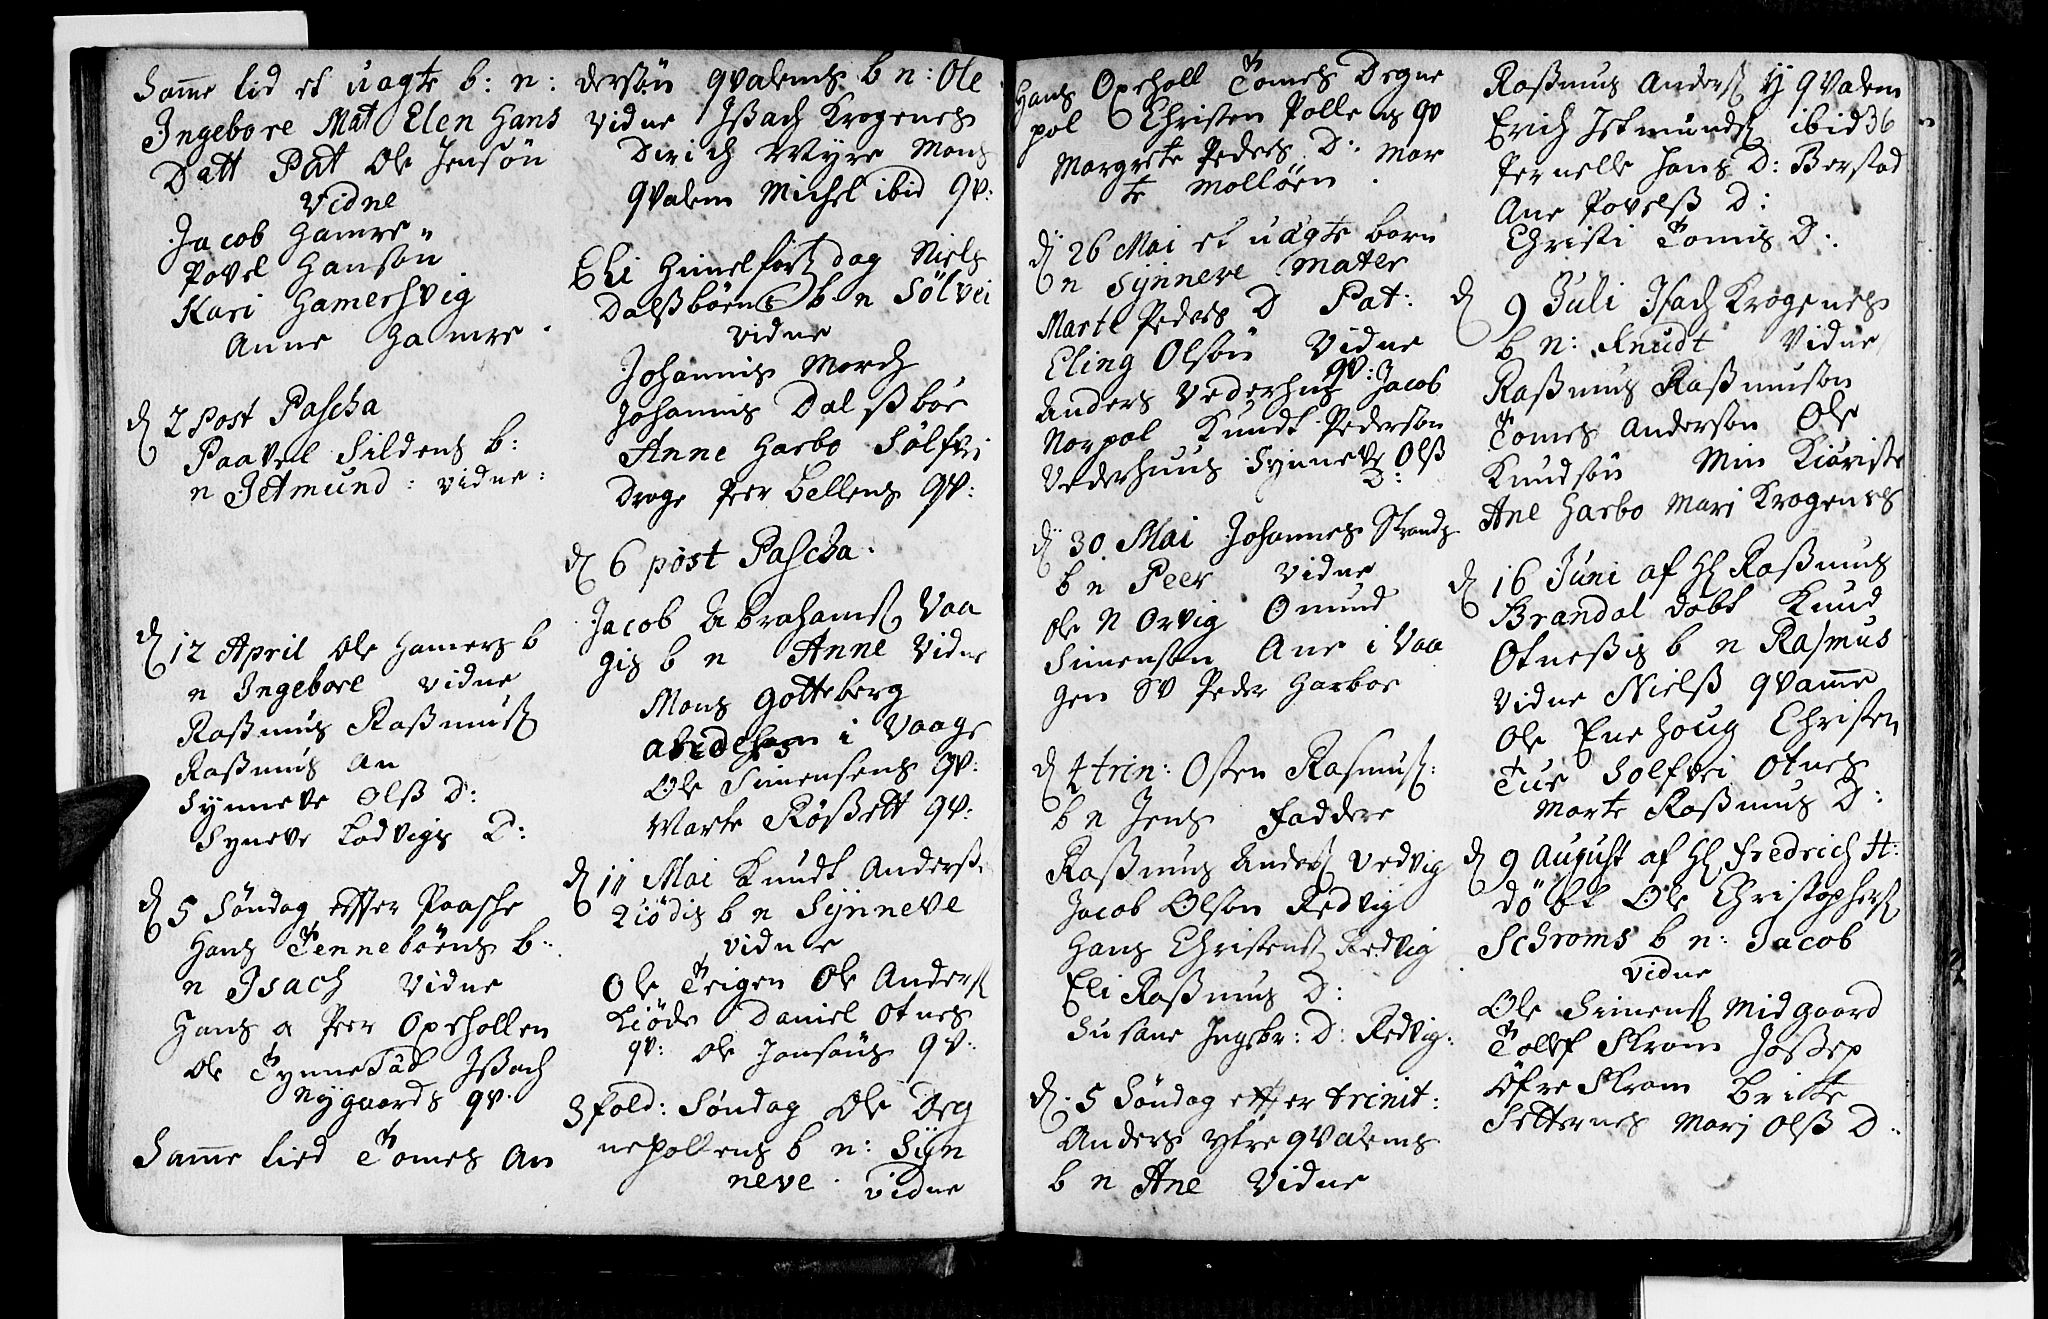 Samme tid et uagte b: n:
Ingebore Mat Elen Hans
Datt Pat Ole Jensøn
Vidne
Jacob Hamre
Povel Hanson
Kari Hamersvig
Anne Hamre
D 2 Post Pascha
Paavel Sildens b:
n Jetmund: vidne:
D 12 April Ole Hamers b
n Ingebore vidne
Rasmus Rasmusß
Rasmus An
Synneve Olß D:
Syneve Ludvigs D:
D 5 Søndag effter Paasche
Hans Tennebøens b:
n Isach Vidne
Hans a Peer Oxehollen
Ole Tynnestad Issach
Nygaards qv:
Samme tied Tomes An
dersøn qvalems b n: Ole
vidne Issach Krogenes
Dirich Myre Mons
qvalem Michel ibid qv:
Chi Himelfartz dag Niels
Dalsbøens b n Sølvei
vidne
Johannis Morch
Johannis Dalsbøe
Anne Harbo Sølfvi
Drage Peer Bellens qv:
D 6 post Pascha.
Jacob Abrahamß Vaa
gis b n Anne Vidne
Mons Gotteberg
i Vaage
Ole Simensens qv:
Marte Røssett qv:
D 11 Mai Knudt Anderß
Liødis b n Synneve
vidne
Ole Teigen Ole Anderß
Liøde Daniel Otnes
qv: Ole Jonsøns qv:
3fold: Søndag Ole Deg
nepollens b n: Syn
neve. vidne
Hans Oxeholl Tomes Degne
pol Christen Pollens qv
Margrete Peders D: Mar
te Molløen.
D 26 Mai et uægte barn
n Synneve Mater
Marte Peders D Pat:
Eling Olsøn Vidne
Anders Vederhus qv: Jacob
Norpol Knudt Pedersøn
Vederhuus Synneve Olß
D:
D 30 Mai Johannes Strands
b n Peer vidne
Ole N Orvig Omund
Simensøn Ane i Vaa
gen SV Peder Harboe
D 4 trin: Osten Rasmusß:
b n Jens Faddere
Rasmus Anderß Vedvig
Jacob Olsøn Redvig
Hans Christensß Redvig
Eli Rasmus D:
Susane Ingebr: D: Redvig:
D. 5 Søndag effter trinit:
Anders Ytre qvalems
b n Ane Vidne
Rasmus Anderß Y qvalem
Erich Jetmundß ibid 36
Pernelle Hans D: Berstad
Ane Povelß D:
Christi Tomis D:
D 9 Juli Isach Krogenes
b n: Knudt Vidne
Rasmus Rasmuson
Tomes Anderson Ole
Knudsøn Min Kiøriste
Ane Harbo Mari Krogenes
D 16 Juni af H Rasmus
Brandal døbt Knud
Otnessis b n Rasmus
Vidne Nielß qvamme
Ole Enehoug Christen
Tue Solfvei Otnes
Marte Rasmus D:
D 9 August af H Fredrich H:
døbt Ole Christophersß
Schroms b n: Jacob
vidne
Ole Simensß Midgaard
Tollef Skrom Jossep
Øfre Skrom Britte
Setternes Mari Olß D: